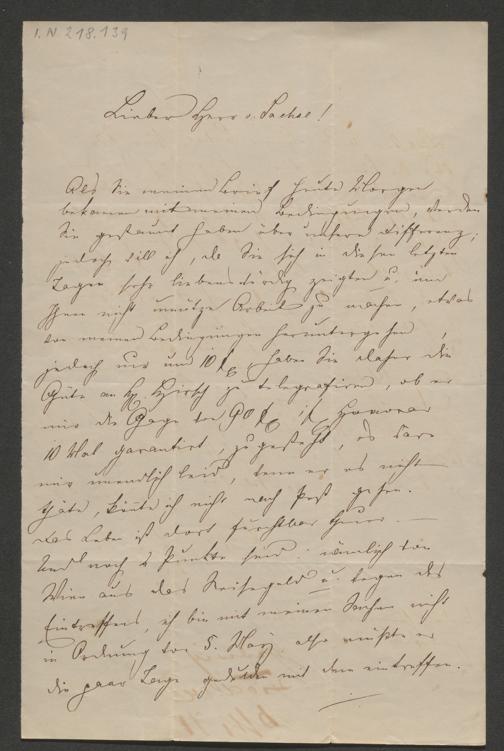 I. N 218.139
Lieber Herr v. Sachse!
Als Sie meinen Brief heute Morgen
bekamen mit meinen Bedingungen, werden
Sie gestaunt haben über unsere Differenz;
jedoch will ich, da Sie sich in diesen letzten
Tagen sehr liebenswürdig zeigten u. um
Ihnen nicht unnütze Arbeit zu machen, etwas
von meinen Bedingungen heruntergehen,
jedoch nur um 10 f. haben Sie daher die
Güte an H. Hirsch zu telegrafieren, ob er
mir die Gage von 90 f. Honorar
10 Mal garantirt, zugesteht, es wäre
mir unendlich leid, wenn er es nicht
thäte, könnte ich nicht nach Pest gehen.
Das Leben ist dort furchtbar theuer. —
Und noch 2 Punkte sind: nämlich von
Wien aus das Reisegeld u. wegen des
Eintreffens, ich bin mit meinen Sachen nicht
in Ordnung vor 5. May also müßte er
die paar Tage gedulden mit dem eintreffen.